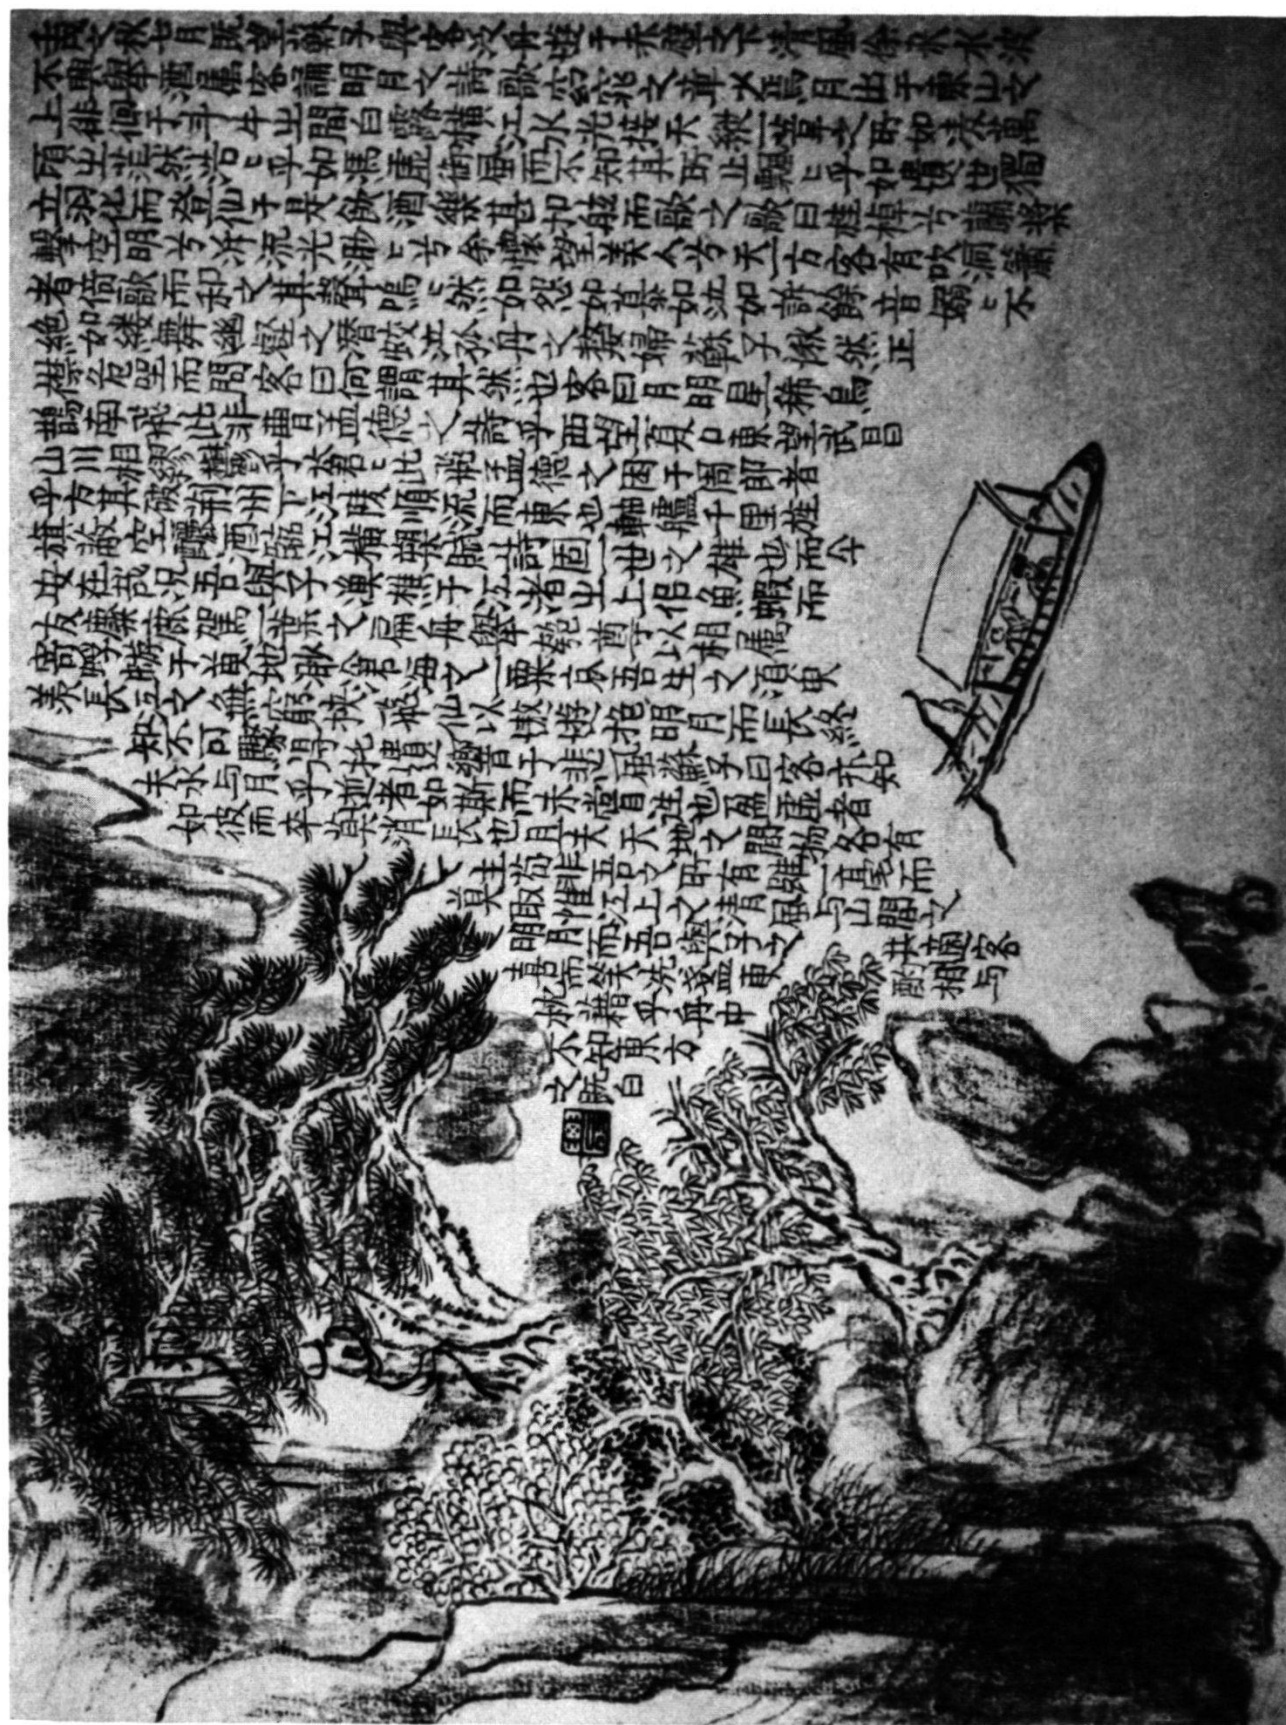 壬戌之秋七月既望蘇子與客泛舟遊于赤壁之下清風徐來水波
不興舉酒屬客誦明月之詩歌窈窕之章少焉月出于東山之
上徘徊于斗牛之間白露橫江水光接天縱一葦之所如淩萬
頃之茫然浩〻乎如馮虛御風而不知其所止飄〻乎如遺世獨
立羽化而登仙于是飲酒樂甚扣舷而歌之歌曰桂棹兮蘭槳
擊空明兮泝流光渺〻兮余懷望美人兮天一方客有吹洞簫
者倚歌而和之其聲嗚〻然如怨如慕如泣如訴餘音嫋〻不
絶如縷舞幽壑之潛蛟泣孤舟之嫠婦蘇子愀然正
襟危坐而問客曰何謂其然也客曰月明星稀烏
鵲南飛此非曹孟德之詩乎西望夏口東望武昌
山川相繆鬱乎蒼〻此非孟德之困于周郎者
乎方其破荆州下江陵順流而東也舳艫千里旌
旗蔽空釃酒臨江橫槊賦詩固一世之雄也而今
安在哉況吾與子漁樵于江渚之上侶魚蝦而
友麋鹿駕一葉之扁舟舉匏尊以相屬
寄蜉蝣于天地渺滄海之一粟哀吾生之須臾
羨長江之無窮挾飛仙以遨遊抱明月而長終
知不可乎驟得托遺響于悲風蘇子曰客亦知
夫水与月乎逝者如斯而未嘗往也盈虛者
如彼而卒莫消長也且夫天地之間物各有
主苟非吾之所有雖一毫而
莫取惟江上之清風与山間之
明月而吾與子之共適客
喜而笑洗盞更酌相与
枕藉乎舟中
不知東方
之既白